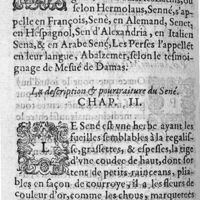 selon Hermolaus, Senné, s'ap-
pelle en François, Sené, en Alemand, Senet,
en Hespagnol, Sen d'Alexandria, en Italien
Sena, & en Arabe Sené, Les Perses l'appellēt
en leur langue, Abalzemer, selon le tesmoi-
gnage de Mesué de Damas.
La description & pourtraiture du Sené.
CHAP. II.
LE Sené est vne herbe ayant les
fueilles semblables à la regalis-
se, grassettes, & espesses, la tige
d'vne coudee de haut, dont sor-
tent de petits rainceaus, plia-
bles en façon de courroye, il a les fleurs de
couleur d'or, comme les chous, marquetees